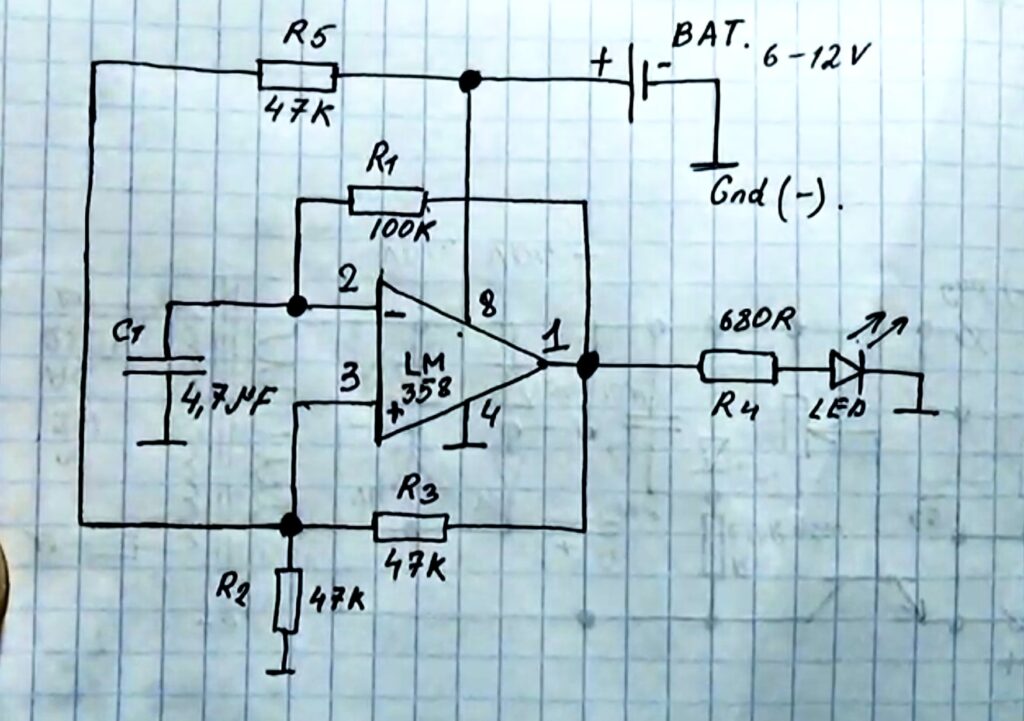 R5
47K
+
-
BAT.
6-12V
Gnd (-).
R1
100K
2
-
8
C1
4,7µF
3
LM
358
+
4
1
680R
R4
LED
R3
47K
R2
47K